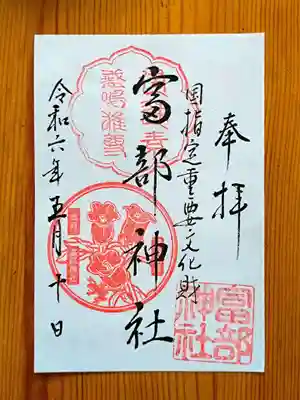 奉拝
国指定重要文化財
富部神社
令和六年五月十日
富部
神社